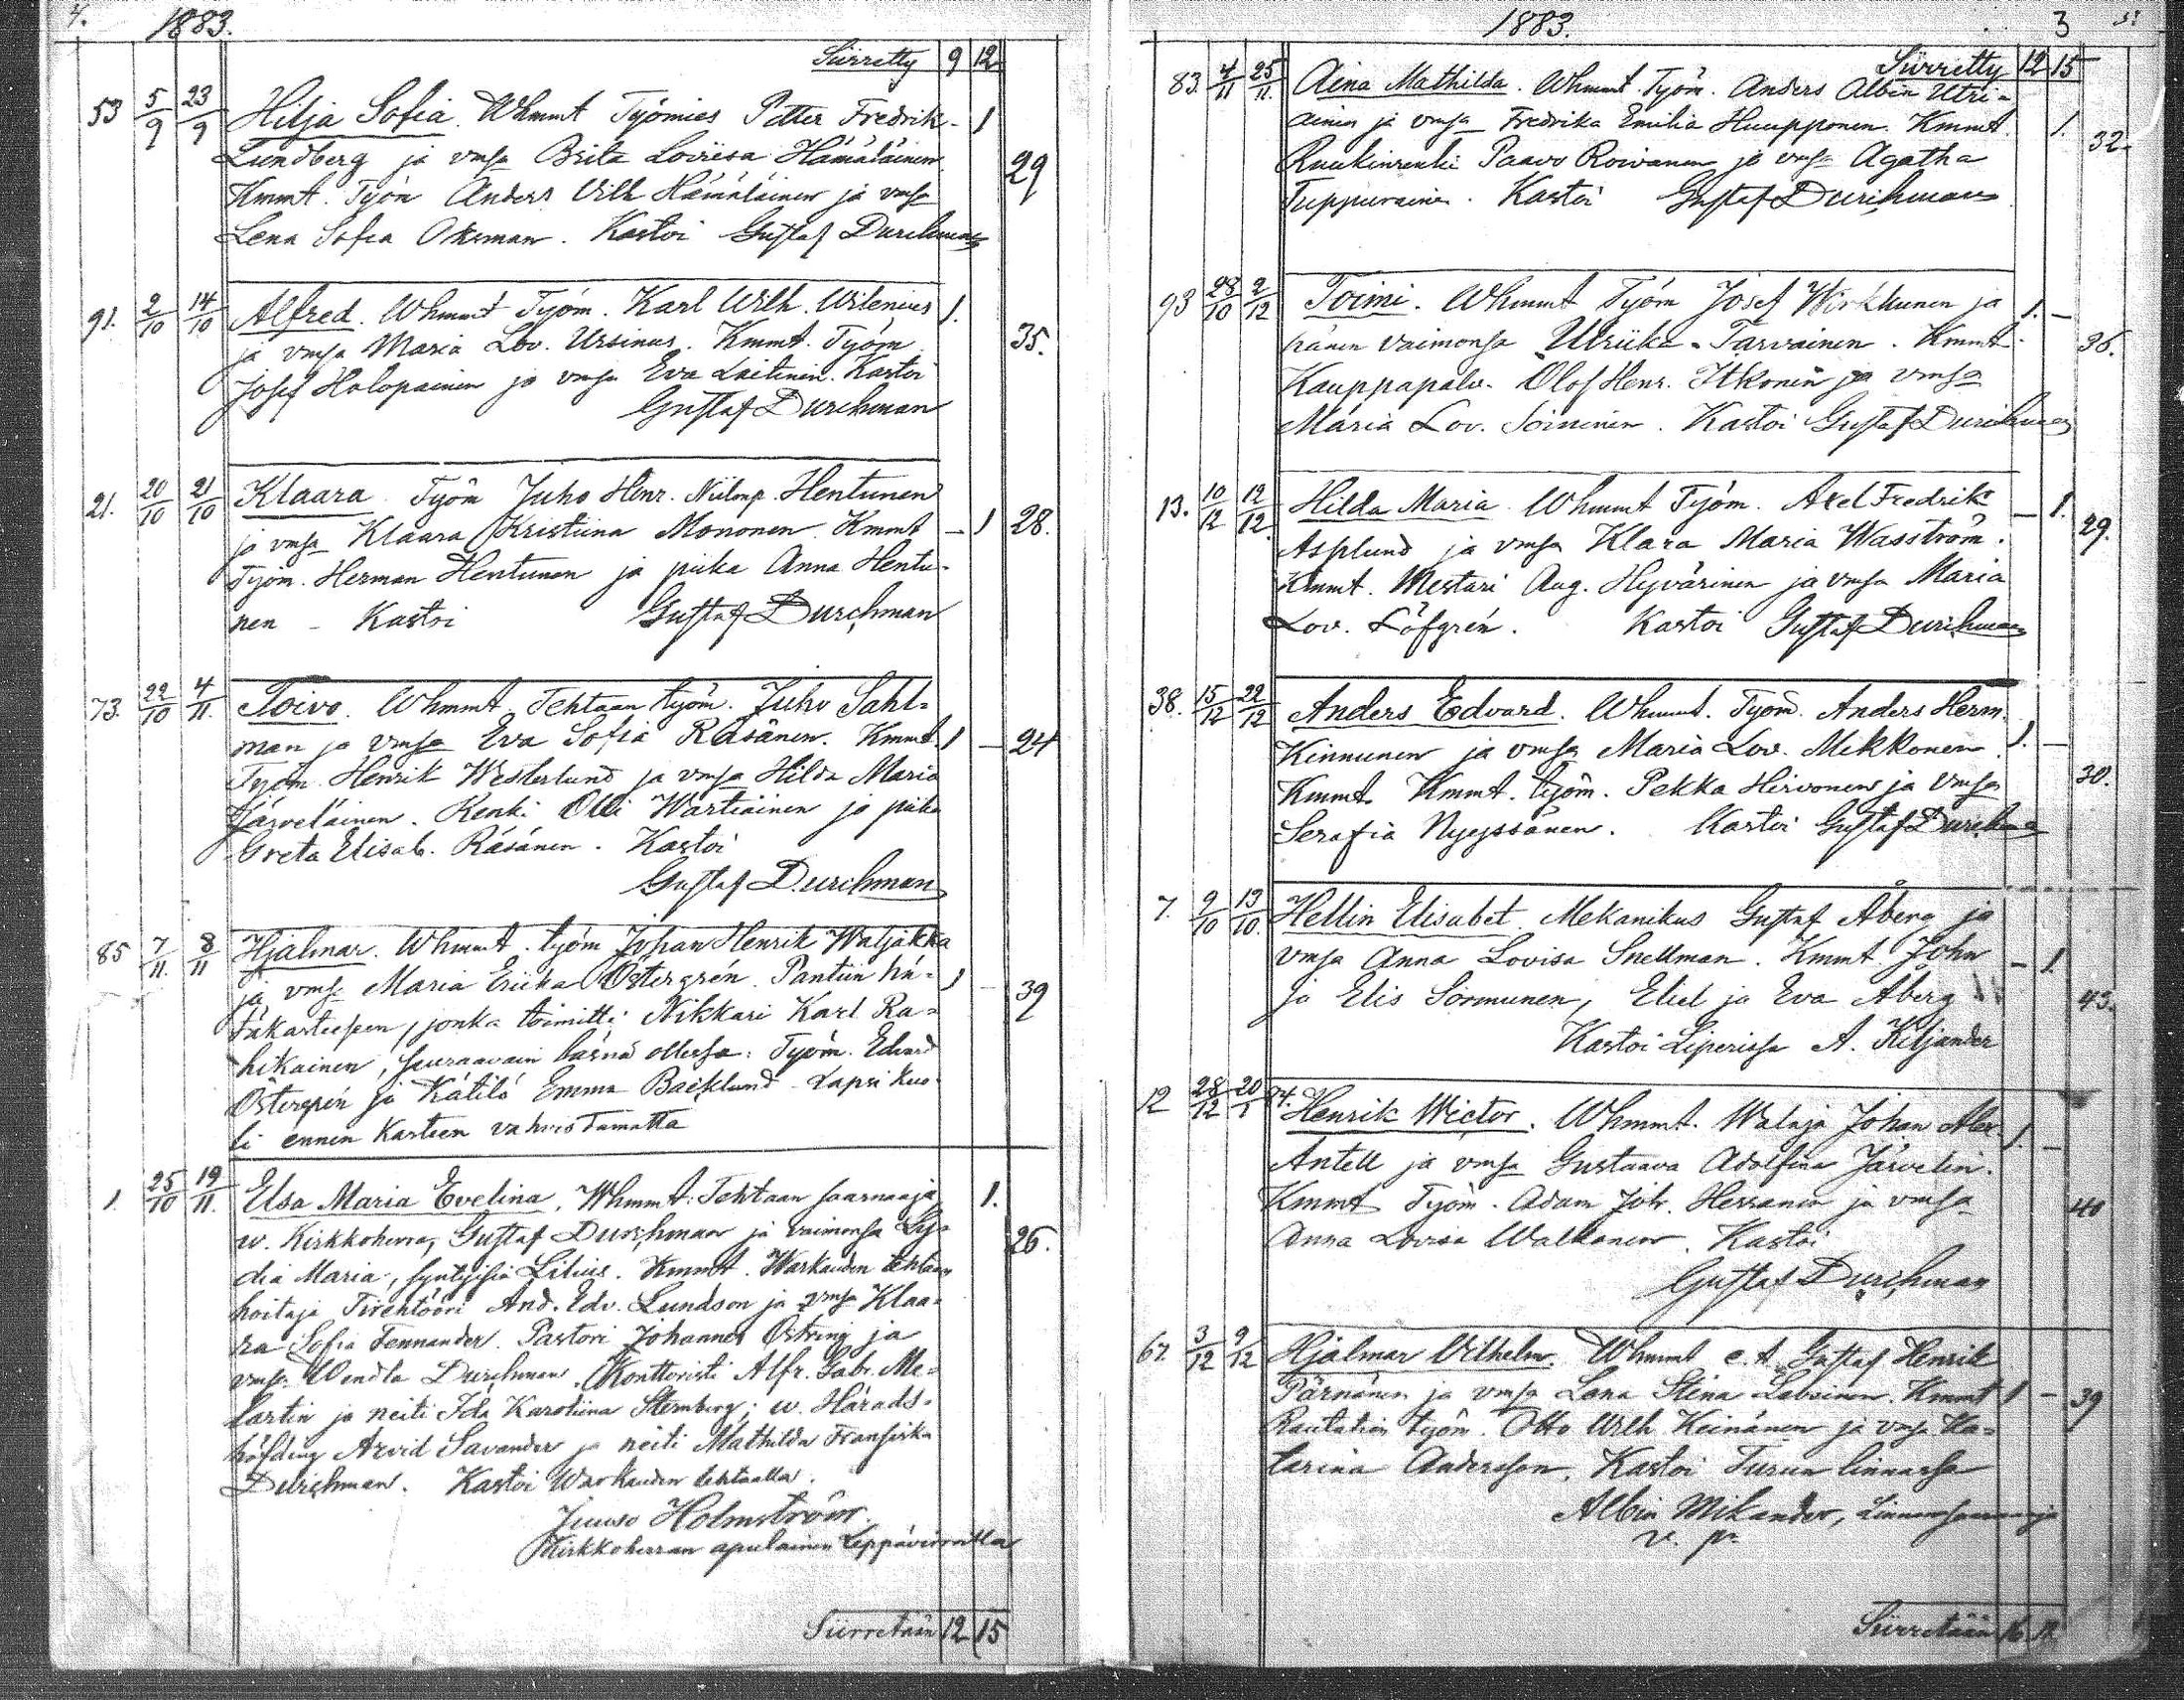 1883.
Siirretty 9 12
53 5/9 23/9 Hilja Sofia. Whmmt Työmies Petter Fredrik 1
Lundberg ja vmsa Brita Loviisa Hämäläinen 29
Kmmt. Työm Anders Vilh Hämäläinen ja vmsa
Lena Sofia Oksman. Kastoi Gustaf Durchman
91. 2/10 14/10 Alfred. Whmmt Työm. Karl Wilh. Wilenius 1.
ja vmsa Maria Lov. Ursinus. Kmmt. Työm 35.
Josef Holopainen ja vmsa Eva Laitinen. Kastoi
Gustaf Durchman
21. 20/10 21/10 Klaara Työm Juho Henr. Hentunen
ja vmsa Klaara Kristiina Mononen Kmmt – 1 28.
Työm. Herman Hentunen ja piika Anna Hentu-
nen – Kastoi Gustaf Durchman
73. 22/10 4/11. Toivo. Whmmt. Tehtaan työm. Juho Sahl-
man ja vmsa Eva Sofia Räsänen. Kmmt. 1 – 24
Työm. Henrik Westerlund ja vmsa Hilda Maria
Järveläinen. Renki Olli Wartiainen ja piika
Greta Elisab. Räsänen. Kastoi
Gustaf Durchman
85 7/11. 8/11 Hjalmar. Whmmt. työm Johan Henrik Watjakka
ja vmsa Maria Eriika Östergrén. Pantiin hä- 1 – 39
täkasteesen, jonka toimitti Nikkari Karl Ra-
hikainen, seuraavain läsnä ollessa: Työm. Edvard
Östergrén ja Kätilö Emma Backlund – Lapsi kuo-
li ennen kasteen vahvistamatta
1. 25/10 19/11. Elsa Maria Evelina. Whmmt: Tehtaan saarnaaja 1.
w. Kirkkoherra, Gustaf Durchman ja vaimonsa Ly- 26.
dia Maria, syntyisin Lilius. Kmmt. Warkauden tehtaan
hoitaja Tirehtööri And. Edv. Lundson ja vmsa Klaa-
ra Sofia Fennander. Pastori Johannes Östring ja
vmsa Wendla Durchman. Konttoristi Alfr. Gabr. Me-
lartin ja neiti Ida Karoliina Sternberg; w. Härads-
höfding Arvid Savander ja neiti Mathilda Fransiska
Durchman. Kastoi Warkauden tehtaalla.
Juuso Holmström.
Kirkkoherran apulainen Leppävirroilla
Siirretään 12 15
1883. 3
Siirretty 12 15
83. 4/11 25/11. Aina Mathilda. Whmmt. Työm. Anders Albin Utri-
ainen ja vmsa Fredrika Emilia Huupponen. Kmmt. 1. 32.
Ruukinrenki Paavo Roivanen ja vmsa Agatha
Tuppurainen. Kastoi Gustaf Durchman
93 28/10 2/12 Toimi. Whmmt Työm Josef Wirkkunen ja 1. –
hänen vaimonsa Ulriika Tarvainen. Kmmt. 36.
Kauppapalv. Olof Henr. Itkonen ja vmsa
Maria Lov. Soininen. Kastoi Gustaf Durchman
13. 10/12 12/12. Hilda Maria. Whmmt Työm. Axel Fredrik – 1.
Asplund ja vmsa Klara Maria Wasström. 29.
Kmmt. Mestari Aug. Hyvärinen ja vmsa Maria
Lov. Löfgrén. Kastoi Gustaf Durchman
38. 15/12 22/12 Anders Edvard. Whmmt. Työm. Anders Herm.
Kinnunen ja vmsa Maria Lov. Mikkonen 1. –
Kmmt. Kmmt. työm. Pekka Hirvonen ja vmsa 30.
Serafia Nyyssönen. Kastoi Gustaf Durchman
7. 9/10 13/10. Hellin Elisabet. Mekanikus Gustaf Åberg ja
vmsa Anna Lovisa Snellman. Kmmt. John – 1.
ja Elis Sormunen, Eliel ja Eva Åberg 43.
Kastoi Liperissa A. Kiljander
12 28/12 20/1 84. Henrik Wictor. Whmmt. Walaja Johan Alex. 1. –
Antell ja vmsa Gustaava Adolfina Järvelin.
Kmmt Työm. Adam Joh. Herranen ja vmsa 40
Anna Lovisa Walkonen. Kastoi
Gustaf Durchman
67. 3/12 9/12 Hjalmar Vilhelm. Whmmt e. t. Gustaf Henrik
Pärnänen ja vmsa Lena Stina Kmmt 1 – 39
Rautatien työm. Otto Wilh. Keinänen ja vmsa Ka-
tarina Andersson. Kastoi Turun linnassa
Albin Mikander, Linnansaarnaaja
v. p.
Siirretään 16